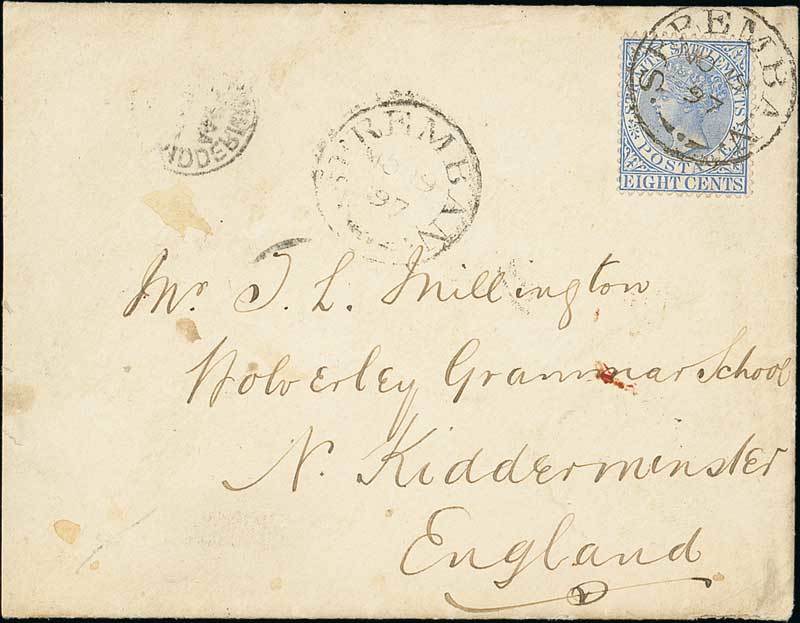 SEREMBAN
97
STRAITS SETTLEMENTS
POSTAGE
EIGHT CENTS
KIDDERMINSTER
SEREMBAN
19
97
Mr. T. L. Millington
Wolverley Grammar School
Nr. Kidderminster
England